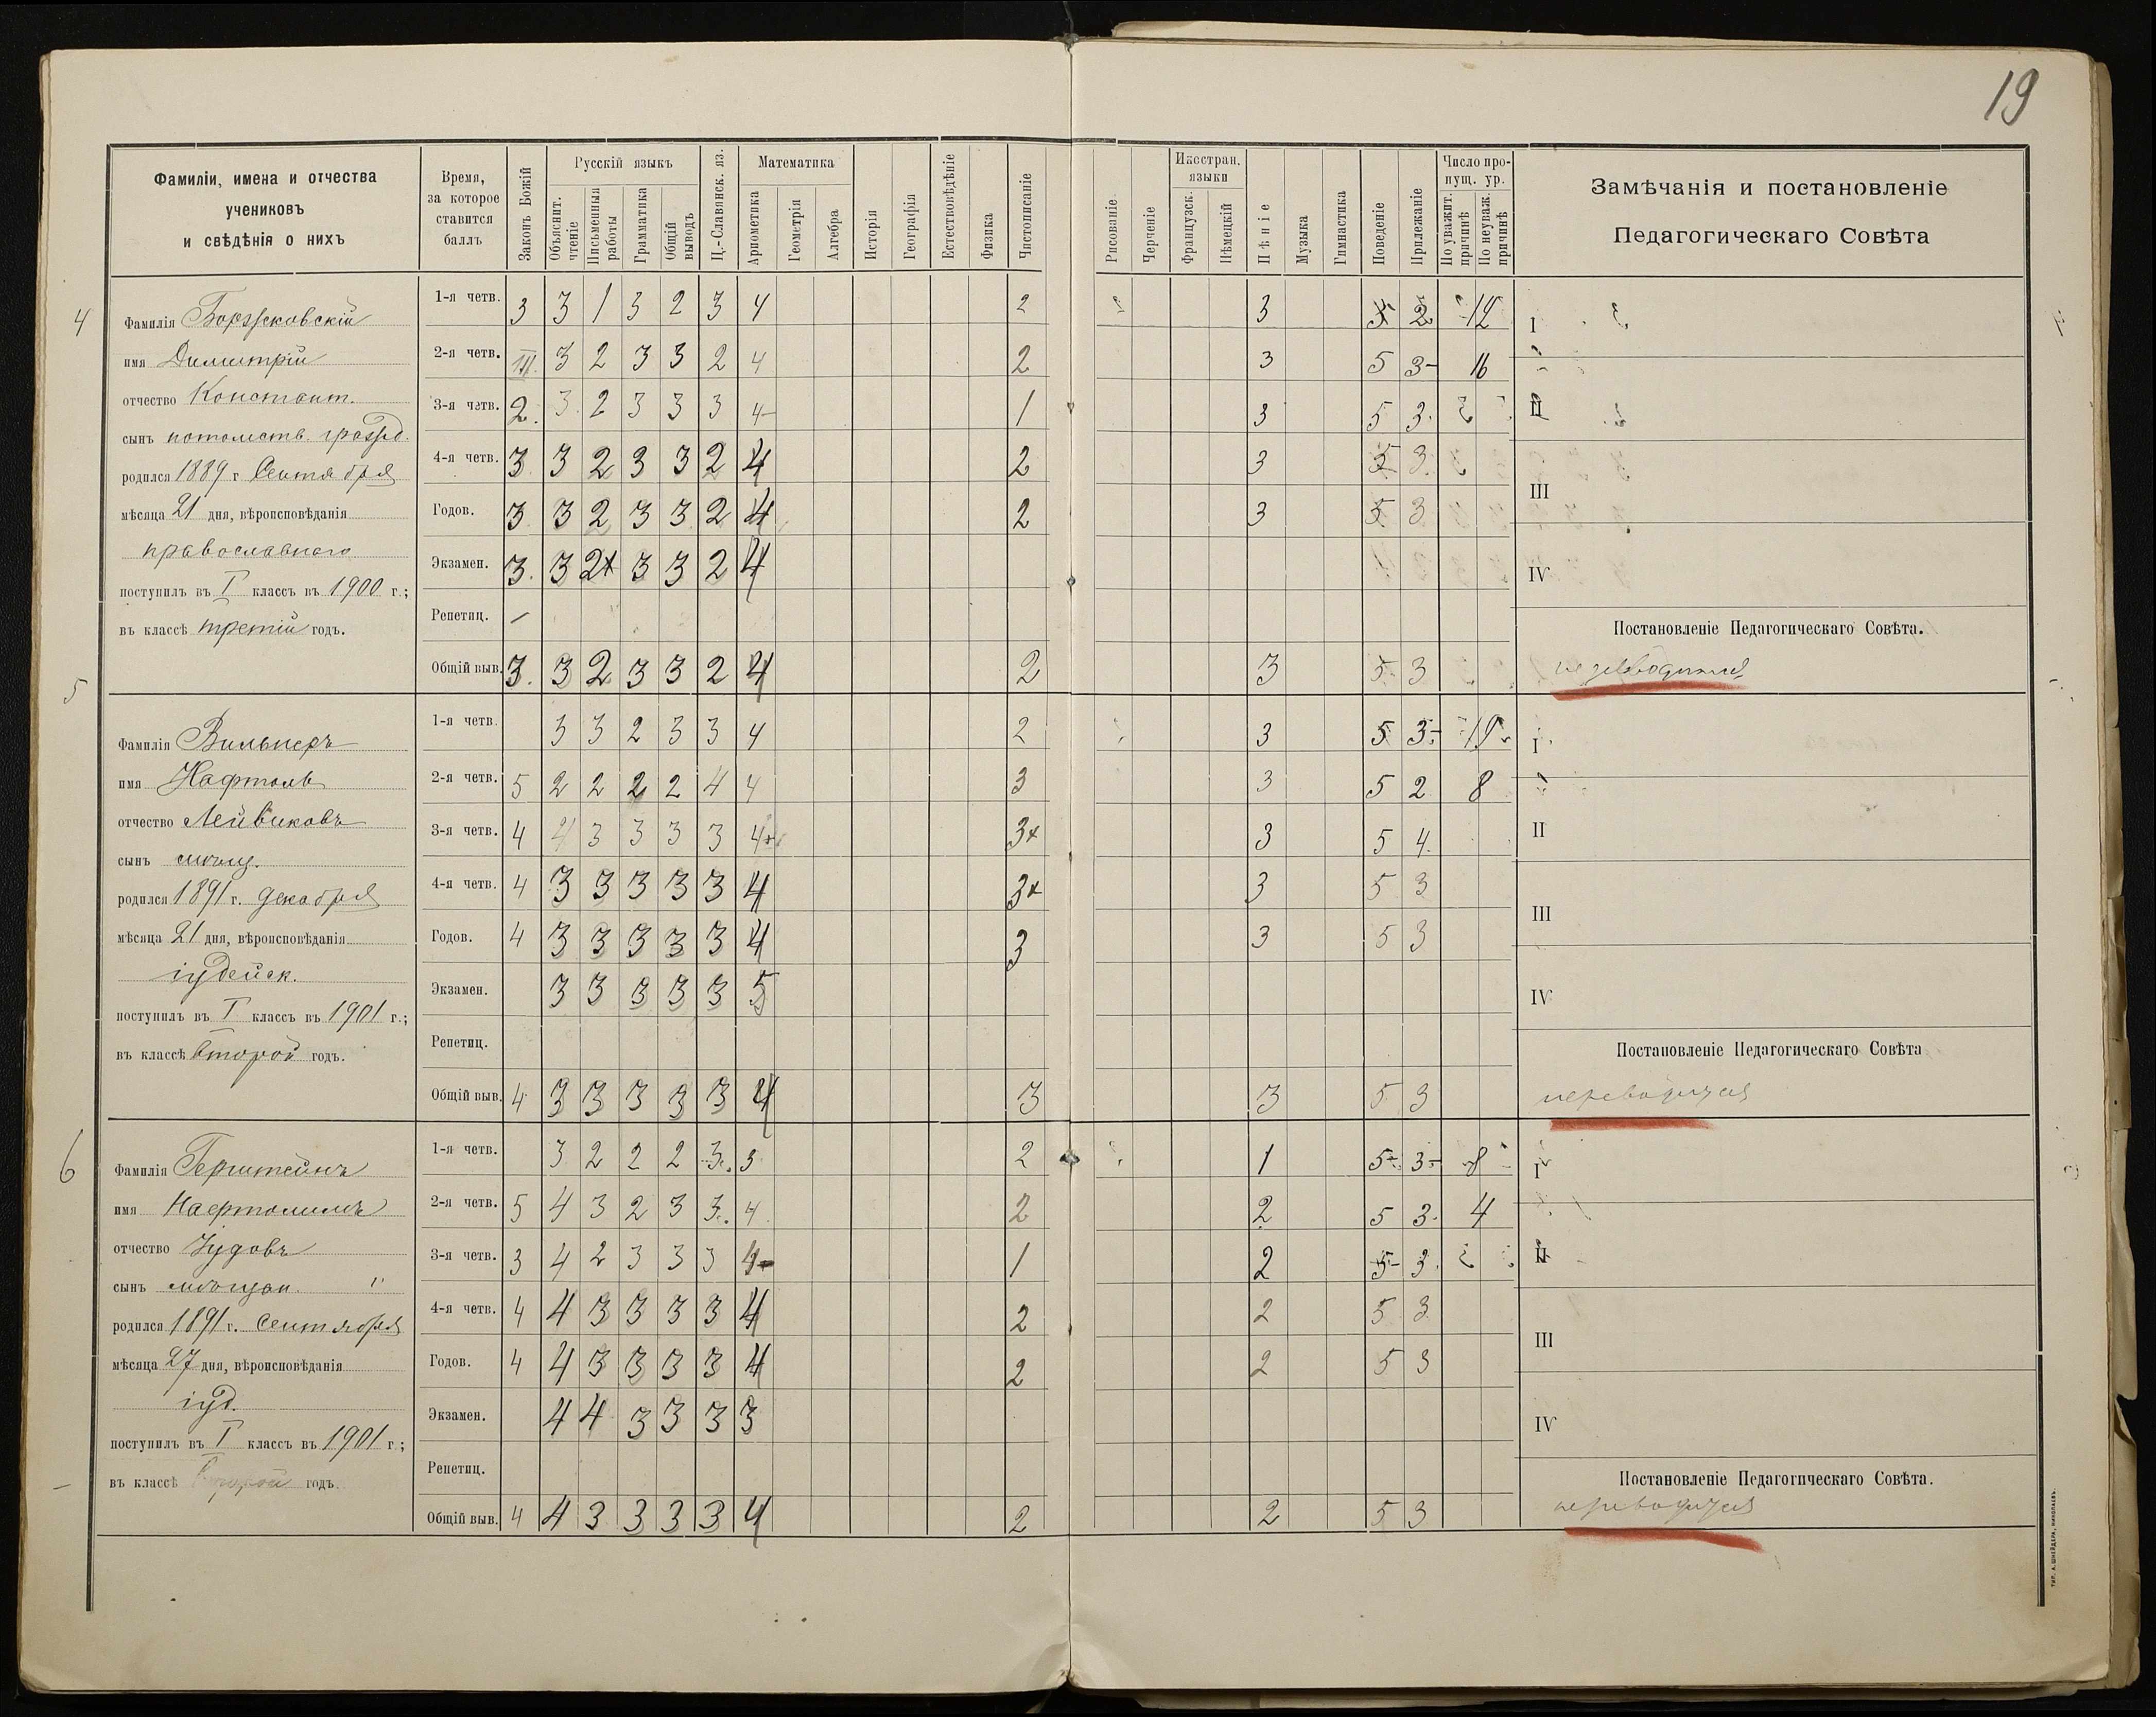 19
Фамиліи, имена и отчества
учениковъ
и свѣдѣнія о нихъ
Время,
за которое
ставится
баллъ
Законъ Божій
Русскій языкъ
Объяснит.
чтеніе
Письменныя
работы
Грамматика
Общій
выводъ
Ц.-Славянск. яз.
Математика
Ариѳметика
Геометрія
Алгебра
Исторія
Географія
Естествовѣдѣніе
Физика
Чистописаніе
Рисованіе
Черченіе
Иностран.
языки
Французск.
Нѣмецкій
Пѣніе
Музыка
Гимнастика
Поведеніе
Прилежаніе
Число про-
пущ. ур.
По уважит.
причинѣ
По неуваж.
причинѣ
Замѣчанія и постановленіе
Педагогическаго Совѣта
4
Фамилія Боржековскій
имя Димитрій
отчество Констант.
сынъ потомств. гражд.
родился 1889 г. Сентября
мѣсяца 21 дня, вѣроисповѣданія
православнаго
поступилъ въ I классъ въ 1900 г.;
въ классѣ третій годъ.
1-я четв. 3 3 1 3 2 3 4 2 3 5 2 12 I
2-я четв. III. 3 2 3 3 2 4 2 3 5 3- 16
3-я четв. 2. 3 2 3 3 3 4- 1 3 5 3. II
4-я четв. 3 3 2 3 3 2 4 2 3 5 3.
Годов. 3 3 2 3 3 2 4 2 3 5 3 III
Экзамен. 3. 3 2+ 3 3 2 4 IV
Репетиц. —
Постановленіе Педагогическаго Совѣта.
Общій выв. 3. 3 2 3 3 2 4 2 3 5 3
5
Фамилія Вильнеръ
имя Нафтоль
отчество Лейвиковъ
сынъ
родился 1891 г. декабря
мѣсяца 21 дня, вѣроисповѣданія
іудейск.
поступилъ въ I классъ въ 1901 г.;
въ классѣ второй годъ.
1-я четв. 3 3 2 3 3 4 2 3 5 3- I
2-я четв. 5 2 2 2 2 4 4 3 3 5 2 8
3-я четв. 4 4 3 3 3 3 4+ 3+ 3 5 4. II
4-я четв. 4 3 3 3 3 3 4 3+ 3 5 3
Годов. 4 3 3 3 3 3 4 3 3 5 3 III
Экзамен. 3 3 3 3 3 5 IV
Репетиц.
Постановленіе Педагогическаго Совѣта
Общій выв. 4 3 3 3 3 3 4 3 3 5 3
переводится
6
Фамилія Герштейнъ
имя Нафтолимъ
отчество Іудовъ
сынъ мѣщан.
родился 1891 г. Сентября
мѣсяца 27 дня, вѣроисповѣданія
іуд.
поступилъ въ I классъ въ 1901 г.;
въ классѣ второй годъ.
1-я четв. 3 2 2 2 3. 3 2 1 5- 3- 8 I
2-я четв. 5 4 3 2 3 3. 4 2 2 5 3. 4
3-я четв. 3 4 2 3 3 3 4- 1 2 5- 3. II
4-я четв. 4 4 3 3 3 3 4 2 2 5 3
Годов. 4 4 3 3 3 3 4 2 2 5 3 III
Экзамен. 4 4 3 3 3 3 IV
Репетиц.
Постановленіе Педагогическаго Совѣта.
Общій выв. 4 4 3 3 3 3 4 2 2 5 3
переводится
ТИП. А. ШНЕЙДЕРА, НИКОЛАЕВЪ.